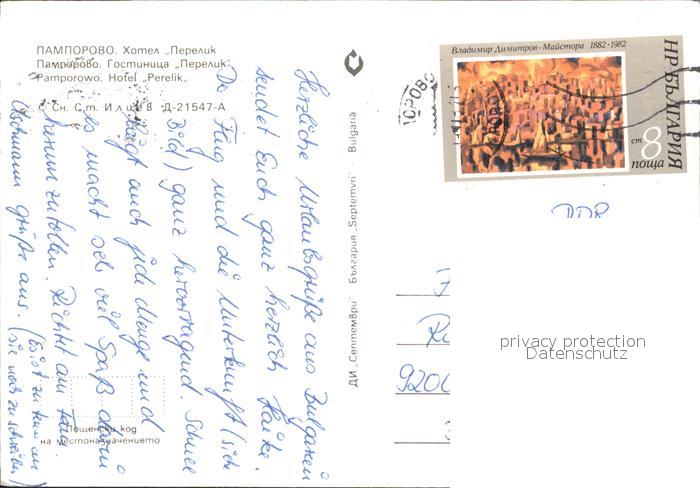 ПАМПОРОВО. Хотел „Перелик
Пампорово. Гостиница „Перелик"
Pamporowo. Hotel „Perelik„
Сн. Ст. Илиев Д-21547-А
Herzliche Urlaubsgrüße aus Bulgarien
sendet Euch ganz herzlich Heike.
Der Flug und die Unterkunft (siehe
Bild) ganz hervorragend. Schnee
liegt auch jede Menge und
es macht sehr viel Spaß darin
herumzutollen. Richtet an Fam.
grüße aus. (Es ist zu
sie noch zu schreiben)
Пощенски код
на местоназначението
ДИ „Септември" България „Septemvri" Bulgaria
Владимир Димитров - Майстора 1882 · 1982
НР БЪЛГАРИЯ
ст 8
поща
ПОРОВО
DDR
920
privacy protection
Datenschutz